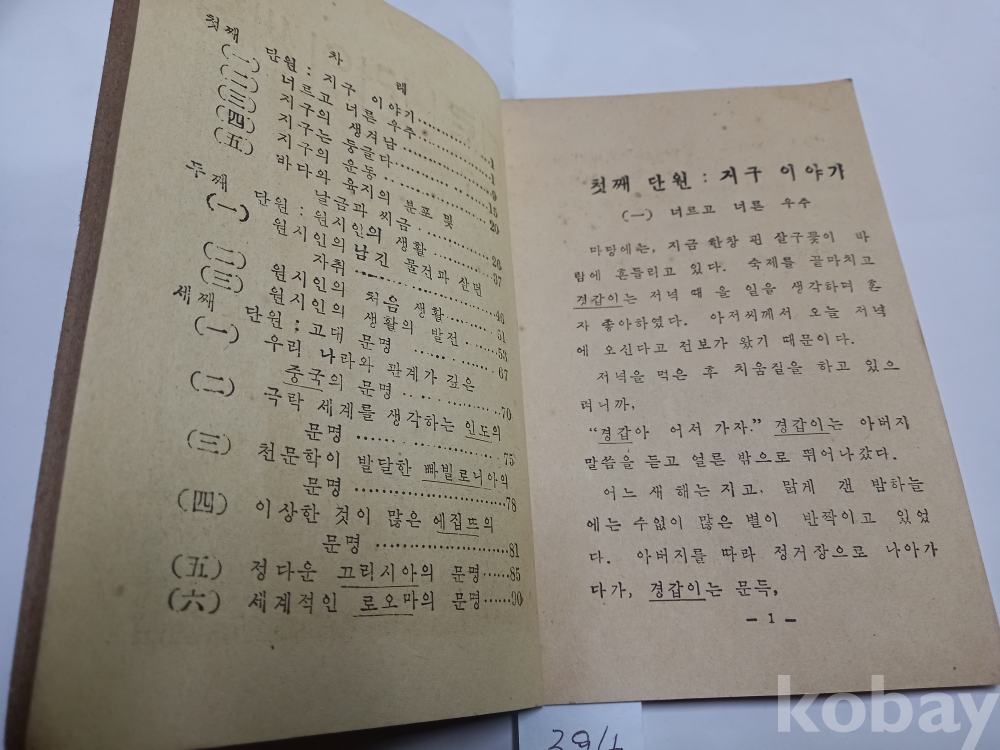 차 례
첫째 단원 : 지구 이야기..........1
(一) 너르고 너른 우주..........1
(二) 지구의 생겨남..........9
(三) 지구는 둥글다..........15
(四) 지구의 운동..........20
(五) 바다와 육지의 분포 및
날금과 씨금..........26
두째 단원 : 원시인의 생활..........37
(一) 원시인의 남긴 물건과 살던
자취..........
(二) 원시인의 처음 생활..........46
(三) 원시인의 생활의 발전..........51
세째 단원 : 고대 문명..........
(一) 우리 나라와 관계가 깊은..........67
중국의 문명
(二) 극락 세계를 생각하는 인도의..........70
문명
(三) 천문학이 발달한 빠빌로니아의..........75
문명..........78
(四) 이상한 것이 많은 에집뜨의
문명..........81
(五) 정다운 끄리시아의 문명......85
(六) 세계적인 로오마의 문명......90
첫째 단원 : 지구 이야기
(一) 너르고 너른 우주
마당에는, 지금 한창 핀 살구꽃이 바
람에 흔들리고 있다. 숙제를 끝마치고
경갑이는 저녁 때 올 일을 생각하며 혼
자 좋아하였다. 아저씨께서 오늘 저녁
에 오신다고 전보가 왔기 때문이다.
저녁을 먹은 후 치움질을 하고 있으
려니까,
“경갑아 어서 가자.” 경갑이는 아버지
말씀을 듣고 얼른 밖으로 뛰어나갔다.
어느 새 해는 지고, 맑게 갠 밤하늘
에는 수없이 많은 별이 반짝이고 있었
다. 아버지를 따라 정거장으로 나아가
다가, 경갑이는 문득,
— 1 —
kobay